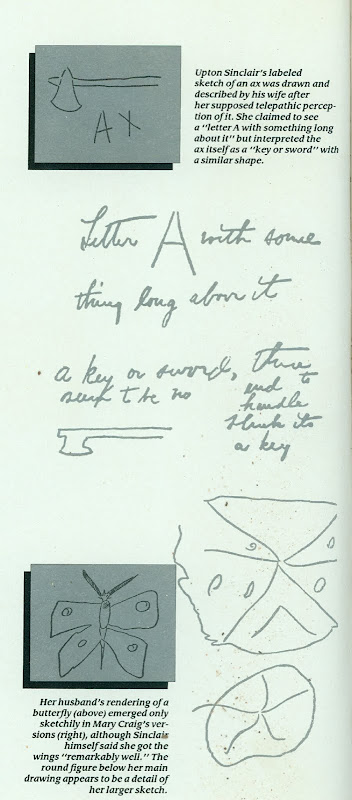 AX
Upton Sinclair's labeled
sketch of an ax was drawn and
described by his wife after
her supposed telepathic percep-
tion of it. She claimed to see
a "letter A with something long
about it" but interpreted the
ax itself as a "key or sword" with
a similar shape.
Letter A with some
thing long above it
a key or sword, there
seem to be no
end to
handle
think its
a key
Her husband's rendering of a
butterfly (above) emerged only
sketchily in Mary Craig's ver-
sions (right), although Sinclair
himself said she got the
wings "remarkably well." The
round figure below her main
drawing appears to be a detail of
her larger sketch.